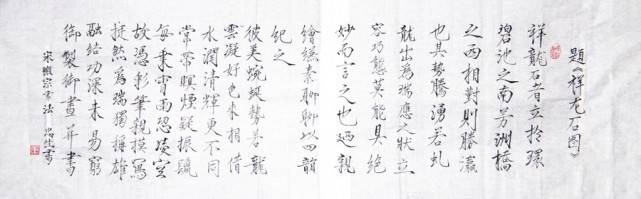 題《祥龙石图》
祥龍石者立於環
碧池之南芳洲橋
之西相對則勝瀛
也其勢騰湧若虬
龍出為瑞應之狀立
容巧態莫能具絕
妙而言之也廼親
繪縑素聊聊以四韻
紀之
彼美蜿蜒勢若龍
雲凝好色來相借
水潤清輝更不同
常常暝煙疑振鬣
每乘宵雨恐凌空
故憑彩筆親模寫
挺然為瑞獨稱雄
融結功深未易窮
御製御畫并書
宋徽宗書法 書